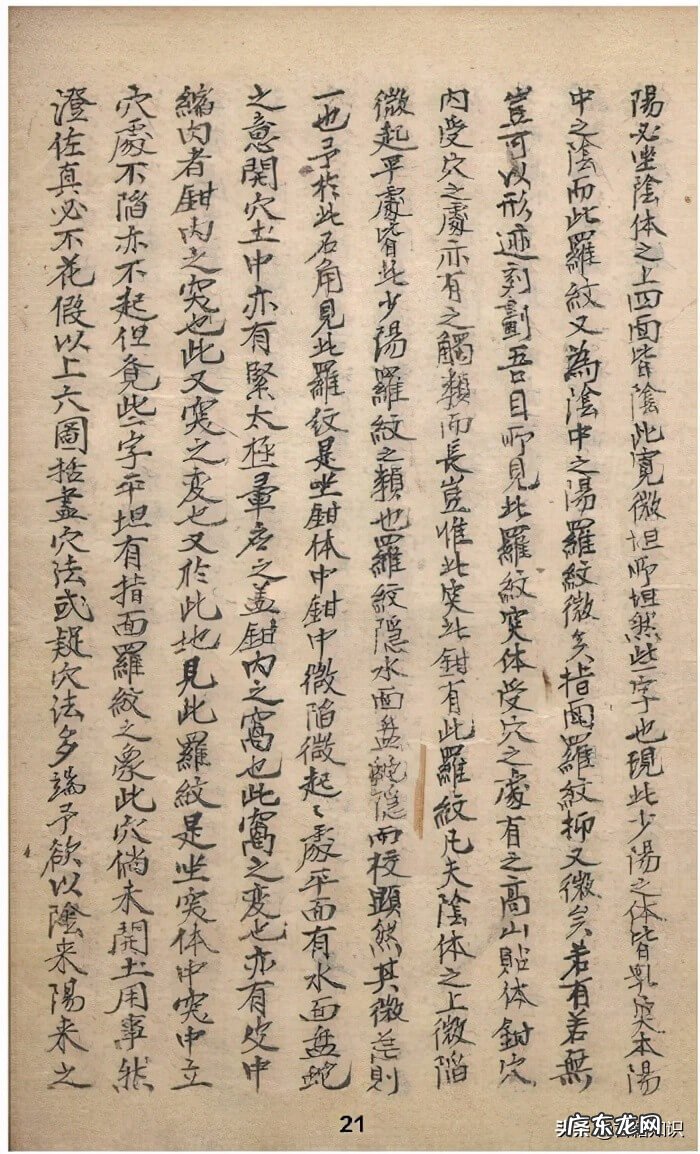 陽必坐陰体之上四面皆陰此寬微坦所坦然些字也現此少陽之体皆乳突本陽
中之陰而此羅紋又為陰中之陽羅紋微矣指面羅紋抑又微矣若有若無
豈可以形迹刻劃吾目所見此羅紋突体受穴之處有之高山貼体鉗穴
内受穴之處亦有之觸類而長豈惟此突此鉗有此羅紋凡夫陰体之上微陷
微起平處皆此少陽羅紋之類也羅紋隱水面盤蛇隱而校顯然其微差則
一也予於此石角見此羅紋是坐鉗体中鉗中微陷微起〻處平面有水面盤蛇
之意開穴土中亦有緊太極暈應之盖鉗内之窩也此窩之变也亦有皮中
縮内者鉗内之突也此又突之变也又於此地見此羅紋是坐突体中突中立
穴處不陷亦不起但竟此一字平坦有指面羅紋之象此穴倘未開土用事然
澄佐真必不花假以上六圖括盡穴法或疑穴法多端予欲以陰来陽来之
21
头条
广东龙网